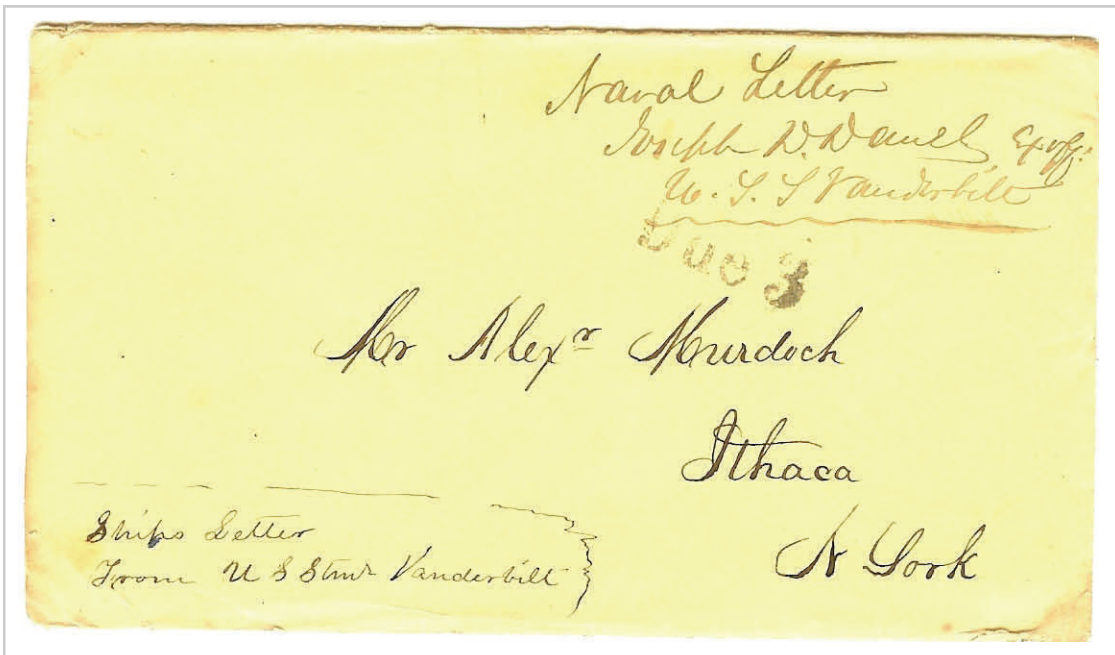 Naval Letter
Joseph D. Daniels Ex. off.
U. S. S Vanderbilt
Due 3
Mr Alexr Murdoch
Ithaca
N York
Ships Letter
From U S Stmr Vanderbilt